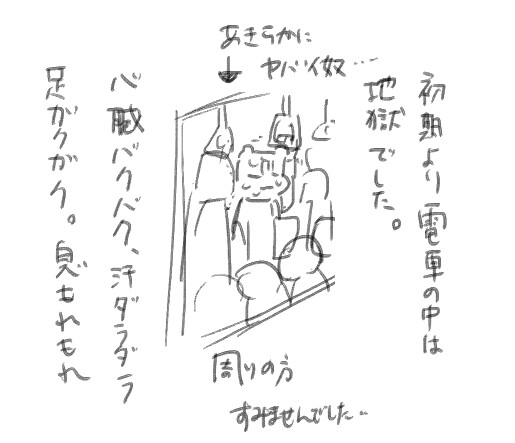 初期より電車の中は
地獄でした。
あきらかに
ヤバイ奴…
心臓バクバク、汗ダラダラ
足ガクガク。息もれもれ
周りの方
すみませんでした…